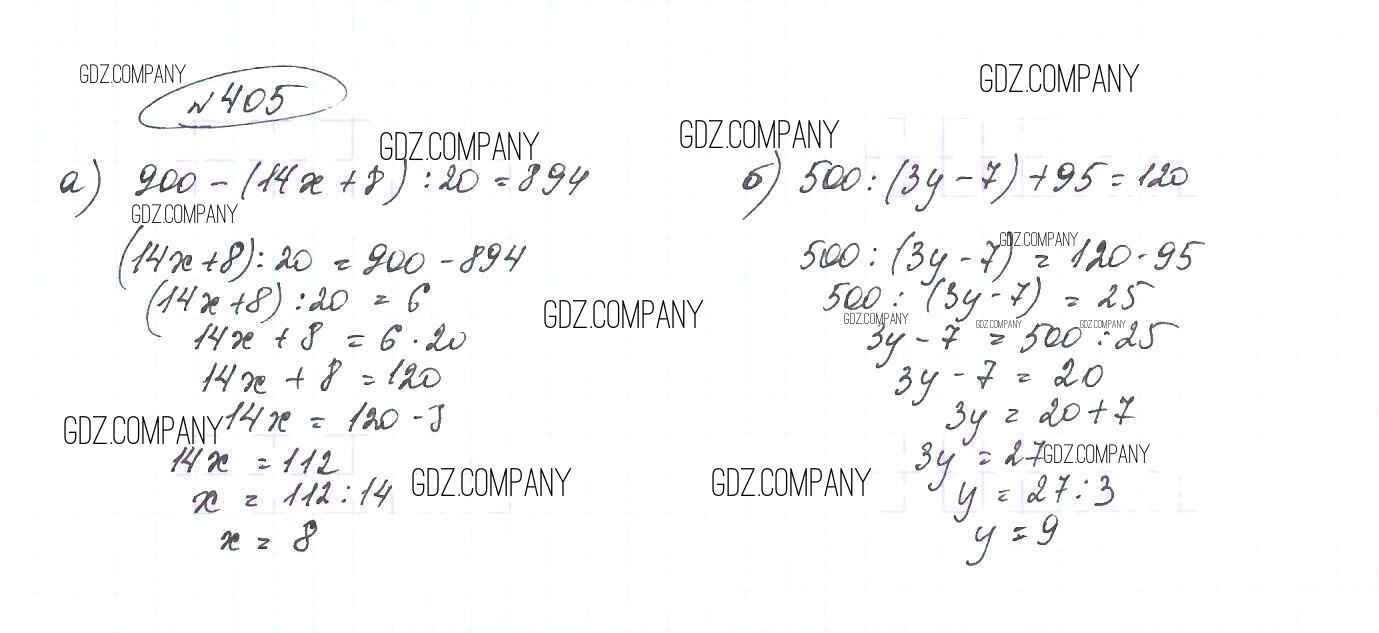 GDZ.COMPANY
№405
GDZ.COMPANY
GDZ.COMPANY
GDZ.COMPANY
а) 900 - (14x + 8) : 20 = 894
GDZ.COMPANY
(14x + 8) : 20 = 900 - 894
(14x + 8) : 20 = 6
GDZ.COMPANY
14x + 8 = 6 · 20
14x + 8 = 120
14x = 120 - 8
GDZ.COMPANY
14x = 112
x = 112 : 14
GDZ.COMPANY
x = 8
б) 500 : (3y - 7) + 95 = 120
GDZ.COMPANY
500 : (3y - 7) = 120 - 95
500 : (3y - 7) = 25
GDZ.COMPANY
GDZ.COMPANY
GDZ.COMPANY
3y - 7 = 500 : 25
3y - 7 = 20
3y = 20 + 7
3y = 27
GDZ.COMPANY
GDZ.COMPANY
y = 27 : 3
y = 9